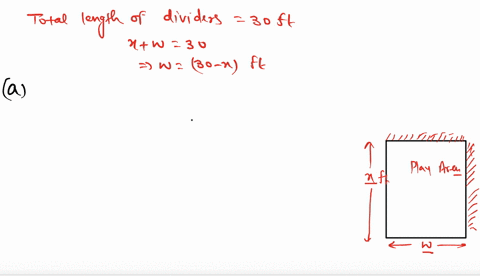 Total length of dividers = 30 ft
x+w = 30
⇒ w = (30-x) ft
(a)
x ft
Play Area
w